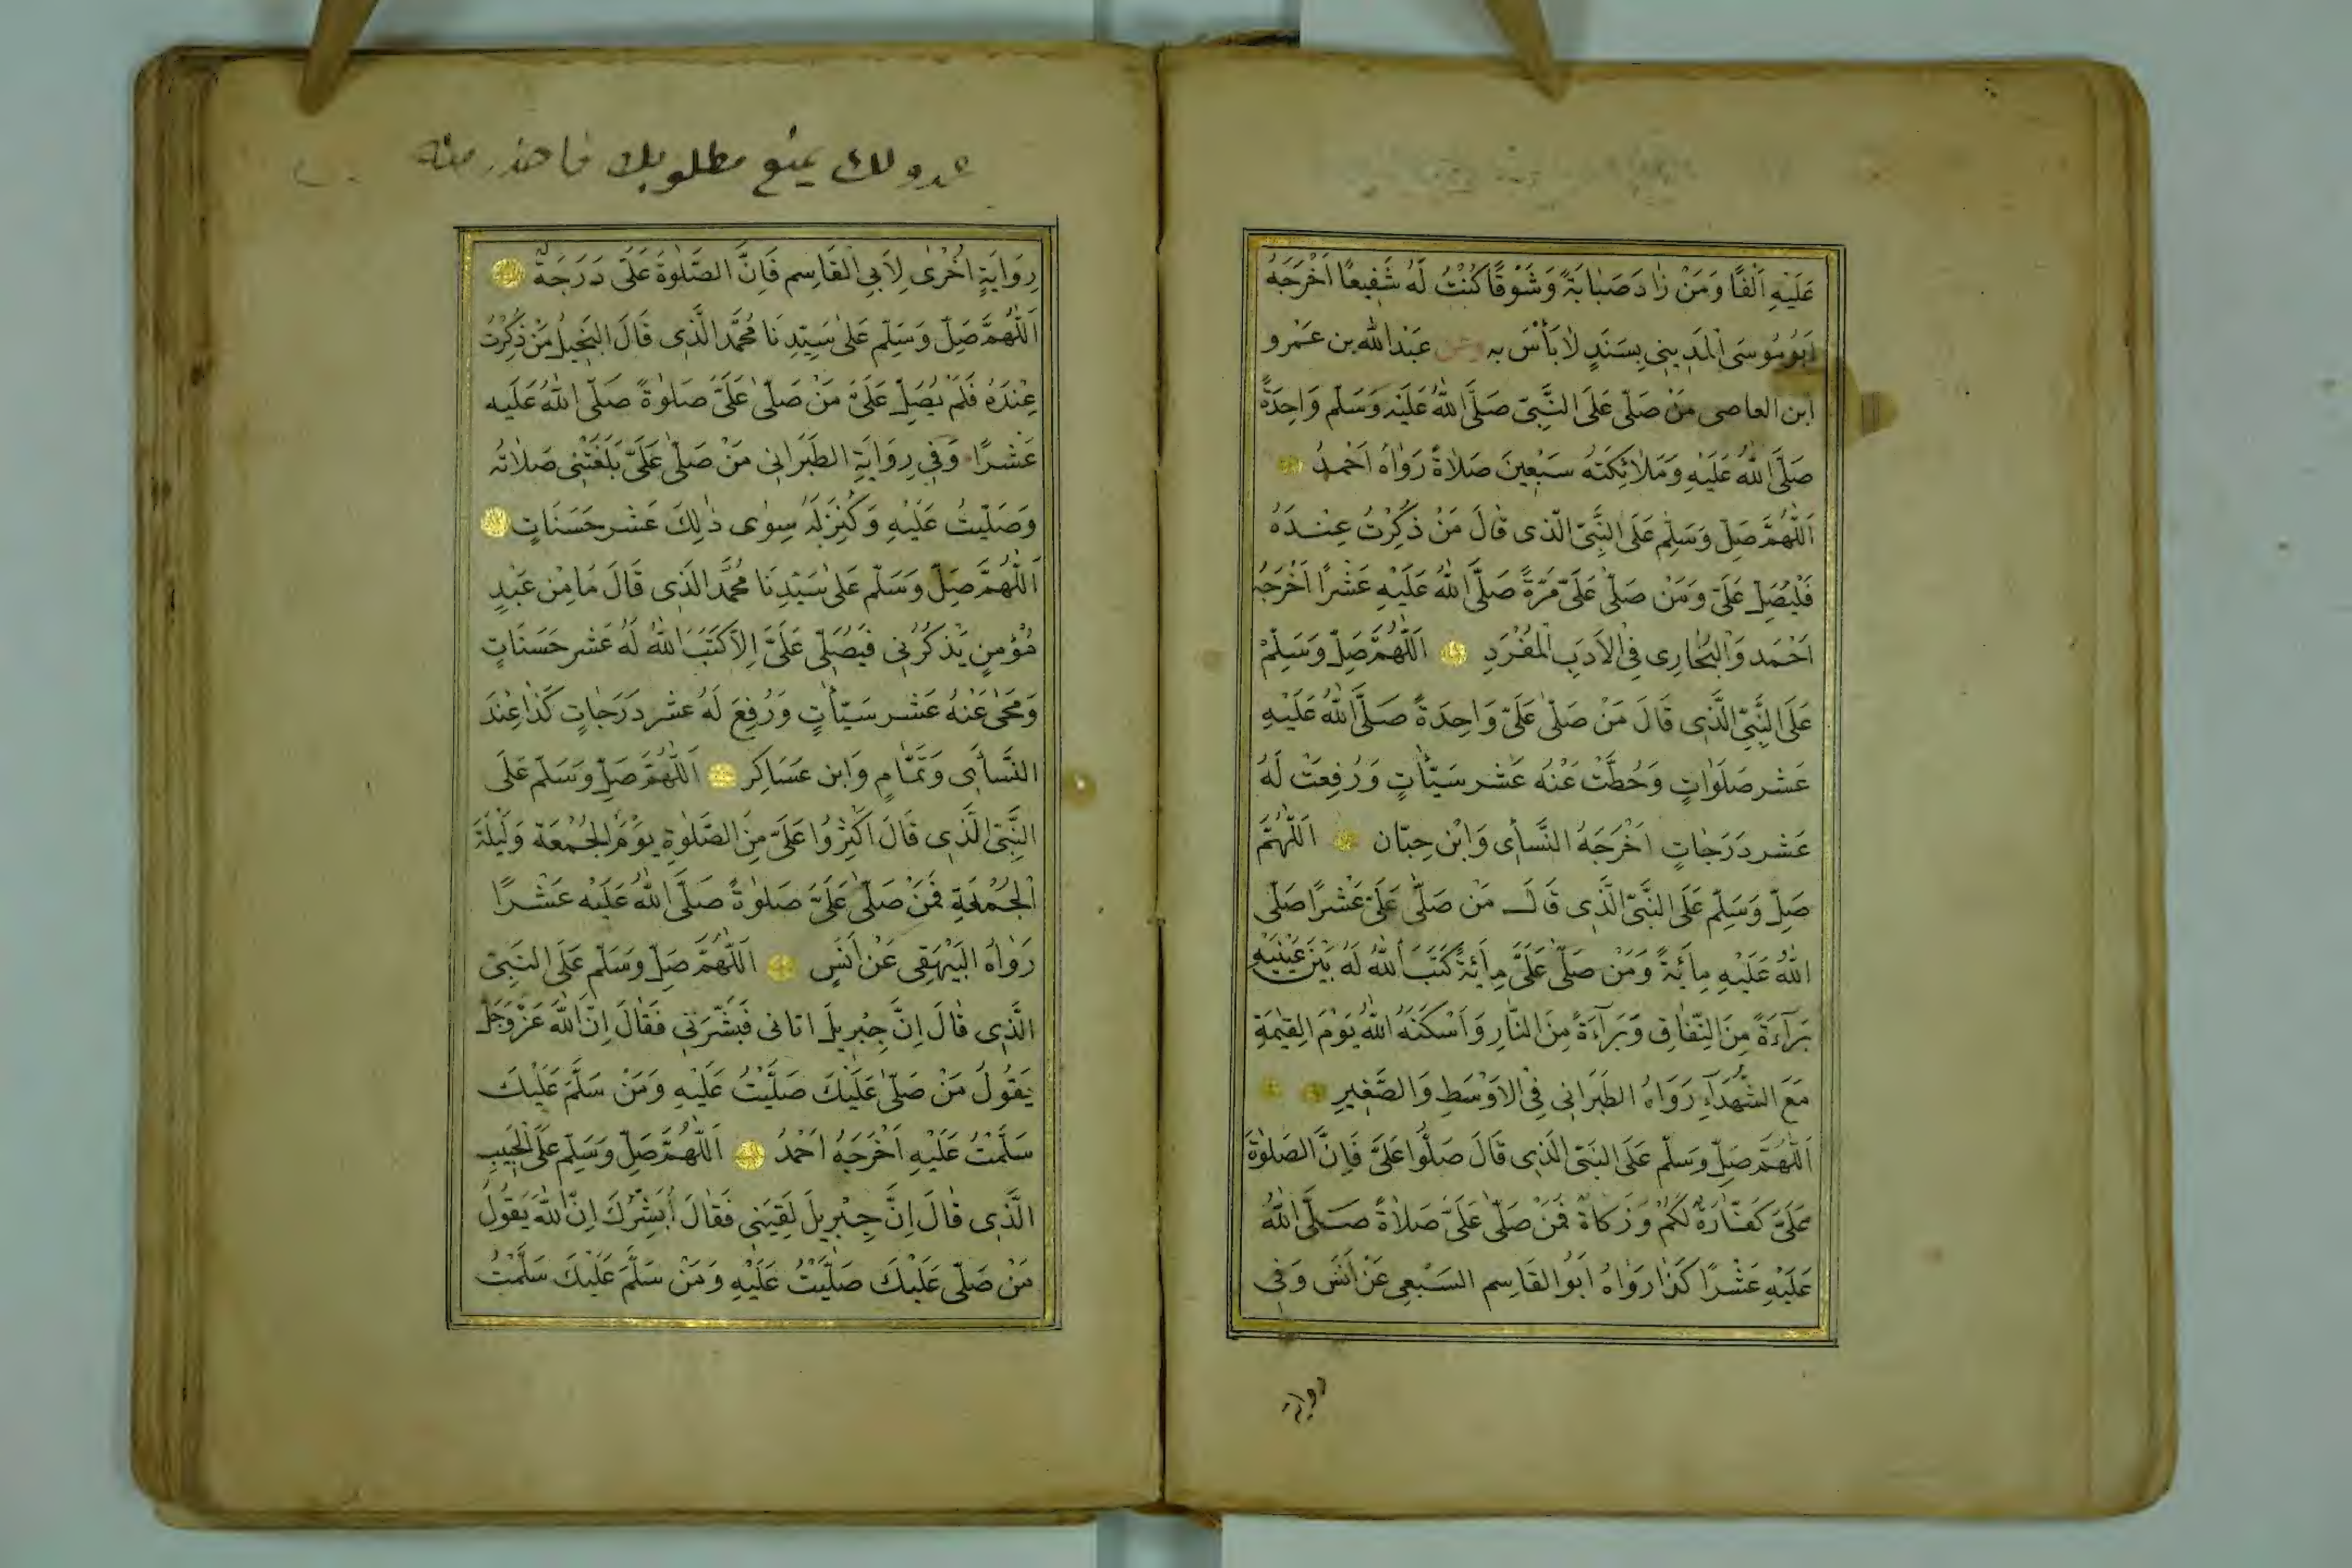 عَلَيْهِ اَلْفًا وَمَنْ زَادَ صَبَابَةً وَشَوْقًا كُنْتُ لَهُ شَفِيعًا اَخْرَجَهُ
اَبُومُوسَى الْمَدِينِي بِسَنَدٍ لَا بَأْسَ بِهِ وعن عَبْدِ اللّٰهِ بن عَمْرو
ابن العاصى مَنْ صَلّٰى عَلَى النَّبِىّ صَلَّى اللّٰهُ عَلَيْهِ وَسَلَّم وَاحِدَةً
صَلَّى اللّٰهُ عَلَيْهِ وَمَلَائِكَتُهُ سَبْعِينَ صَلَاةً رَوَاهُ اَحْمَدُ
اَللّٰهُمَّ صَلِّ وَسَلِّمْ عَلَى النَّبِىّ الَّذِى قَالَ مَنْ ذُكِرْتُ عِنْدَهُ
فَلْيُصَلِّ عَلَىَّ وَمَنْ صَلّٰى عَلَىَّ مَرَّةً صَلَّى اللّٰهُ عَلَيْهِ عَشْرًا اَخْرَجَهُ
اَحْمَد وَالْبُخَارِى فِى الْاَدَبِ الْمُفْرَدِ اَللّٰهُمَّ صَلِّ وَسَلِّمْ
عَلَى النَّبِىّ الَّذِى قَالَ مَنْ صَلّٰى عَلَىَّ وَاحِدَةً صَلَّى اللّٰهُ عَلَيْهِ
عَشْر صَلَوَاتٍ وَحُطَّتْ عَنْهُ عَشْر سَيِّأٰتٍ وَرُفِعَتْ لَهُ
عَشْر دَرَجَاتٍ اَخْرَجَهُ النَّسَأى وَابْن حِبَّان اَللّٰهُمَّ
صَلِّ وَسَلِّم عَلَى النَّبِىّ الَّذِى قَالَ مَنْ صَلّٰى عَلَىَّ عَشْرًا صَلّٰى
اللّٰهُ عَلَيْهِ مِأَئَةً وَمَنْ صَلّٰى عَلَىَّ مِأَئَةً كَتَبَ اللّٰهُ لَهُ بَيْنَ عَيْنَيْهِ
بَرَآءَةً مِنَ النِّفَاقِ وَبَرَآءَةً مِنَ النَّارِ وَاَسْكَنَهُ اللّٰهُ يَوْمَ الْقِيٰمَةِ
مَعَ الشُّهَدَآءِ رَوَاهُ الطَبَرَانِى فِى الْاَوْسَطِ وَالصَّغِيرِ
اَللّٰهُمَّ صَلِّ وَسَلِّم عَلَى النَّبِىّ الَّذِى قَالَ صَلُّوا عَلَىَّ فَاِنَّ الصَلٰوةَ
عَلَىَّ كَفَّارَةٌ لَكُمْ وَزَكَاةٌ فَمَنْ صَلّٰى عَلَىَّ صَلَاةً صَلَّى اللّٰهُ
عَلَيْهِ عَشْرًا كَذَا رَوَاهُ اَبُوالقَاسِم السَبْعِى عَنْ اَنَسٍ وَفِى
رواية
عدو لك يمنع مطلوبك فاحذر منه
رِوَايَةٍ اُخْرٰى لِاَبِى الْقَاسِم فَاِنَّ الصَّلٰوةَ عَلَىَّ دَرَجَةٌ
اَللّٰهُمَّ صَلِّ وَسَلِّم عَلٰى سَيِّدِنَا مُحَمَّد الَّذِى قَالَ الْبَخِيلُ مَنْ ذُكِرْتُ
عِنْدَهُ فَلَمْ يُصَلِّ عَلَىَّ مَنْ صَلّٰى عَلَىَّ صَلٰوةً صَلَّى اللّٰهُ عَلَيْهِ
عَشْرًا وَفِى رِوَايَةِ الطَبَرَانِى مَنْ صَلّٰى عَلَىَّ بَلَغَتْنِى صَلَاتُه
وَصَلَّيْتُ عَلَيْهِ وَكُتِبَ لَهُ سِوٰى ذٰلِكَ عَشْر حَسَنَاتٍ
اَللّٰهُمَّ صَلِّ وَسَلِّم عَلٰى سَيِّدِنَا مُحَمَّد الَّذِى قَالَ مَا مِنْ عَبْدٍ
مُؤْمِنٍ يَذْكُرُنِى فَيُصَلِّى عَلَىَّ اِلَّا كَتَبَ اللّٰهُ لَهُ عَشْر حَسَنَاتٍ
وَمَحٰى عَنْهُ عَشْر سَيِّأٰتٍ وَرُفِعَ لَهُ عَشْر دَرَجَاتٍ كَذَا عِنْدَ
النَّسَأى وَتَمَّامٍ وَابن عَسَاكِر اَللّٰهُمَّ صَلِّ وَسَلِّم عَلَى
النَّبِىّ الَّذِى قَالَ اَكْثِرُوا عَلَىَّ مِنَ الصَّلٰوةِ يَوْمَ الْجُمْعَة وَلَيْلَةَ
الْجُمْعَةِ فَمَنْ صَلّٰى عَلَىَّ صَلٰوةً صَلَّى اللّٰهُ عَلَيْهِ عَشْرًا
رَوَاهُ الْبَيْهَقِى عَنْ اَنَسٍ اَللّٰهُمَّ صَلِّ وَسَلِّم عَلَى النَّبِىّ
الَّذِى قَالَ اِنَّ جِبْرِيلَ اتانى فَبَشَّرَنِى فَقَالَ اِنَّ اللّٰهَ عَزَّ وَجَلَّ
يَقُولُ مَنْ صَلّٰى عَلَيْكَ صَلَّيْتُ عَلَيْهِ وَمَنْ سَلَّمَ عَلَيْكَ
سَلَّمْتُ عَلَيْهِ اَخْرَجَهُ اَحْمَدُ اَللّٰهُمَّ صَلِّ وَسَلِّم عَلَى الْحَبِيبِ
الَّذِى قَالَ اِنَّ جِبْرِيلَ لَقِيَنِى فَقَالَ اُبَشِّرُكَ اِنَّ اللّٰهَ يَقُولُ
مَنْ صَلّٰى عَلَيْكَ صَلَّيْتُ عَلَيْهِ وَمَنْ سَلَّمَ عَلَيْكَ سَلَّمْتُ